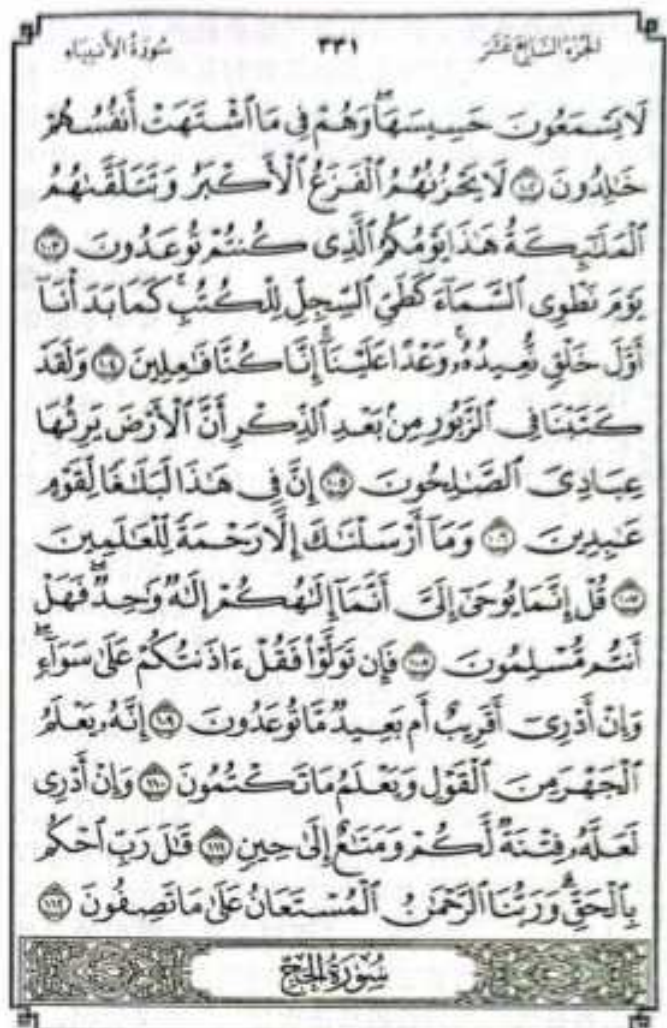 الجزء السابع عشر ٣٣١ سورة الأنبياء
لَا يَسْمَعُونَ حَسِيسَهَا ۖ وَهُمْ فِى مَا ٱشْتَهَتْ أَنفُسُهُمْ
خَٰلِدُونَ ١٠٢ لَا يَحْزُنُهُمُ ٱلْفَزَعُ ٱلْأَكْبَرُ وَتَتَلَقَّىٰهُمُ
ٱلْمَلَٰٓئِكَةُ هَٰذَا يَوْمُكُمُ ٱلَّذِى كُنتُمْ تُوعَدُونَ ١٠٣
يَوْمَ نَطْوِى ٱلسَّمَآءَ كَطَىِّ ٱلسِّجِلِّ لِلْكُتُبِ ۚ كَمَا بَدَأْنَآ
أَوَّلَ خَلْقٍ نُّعِيدُهُۥ ۚ وَعْدًا عَلَيْنَآ ۚ إِنَّا كُنَّا فَٰعِلِينَ ١٠٤ وَلَقَدْ
كَتَبْنَا فِى ٱلزَّبُورِ مِنۢ بَعْدِ ٱلذِّكْرِ أَنَّ ٱلْأَرْضَ يَرِثُهَا
عِبَادِىَ ٱلصَّٰلِحُونَ ١٠٥ إِنَّ فِى هَٰذَا لَبَلَٰغًا لِّقَوْمٍ
عَٰبِدِينَ ١٠٦ وَمَآ أَرْسَلْنَٰكَ إِلَّا رَحْمَةً لِّلْعَٰلَمِينَ
١٠٧ قُلْ إِنَّمَا يُوحَىٰٓ إِلَىَّ أَنَّمَآ إِلَٰهُكُمْ إِلَٰهٌ وَٰحِدٌ ۖ فَهَلْ
أَنتُم مُّسْلِمُونَ ١٠٨ فَإِن تَوَلَّوْا۟ فَقُلْ ءَاذَنتُكُمْ عَلَىٰ سَوَآءٍ ۖ
وَإِنْ أَدْرِىٓ أَقَرِيبٌ أَم بَعِيدٌ مَّا تُوعَدُونَ ١٠٩ إِنَّهُۥ يَعْلَمُ
ٱلْجَهْرَ مِنَ ٱلْقَوْلِ وَيَعْلَمُ مَا تَكْتُمُونَ ١١٠ وَإِنْ أَدْرِى
لَعَلَّهُۥ فِتْنَةٌ لَّكُمْ وَمَتَٰعٌ إِلَىٰ حِينٍ ١١١ قَٰلَ رَبِّ ٱحْكُم
بِٱلْحَقِّ ۗ وَرَبُّنَا ٱلرَّحْمَٰنُ ٱلْمُسْتَعَانُ عَلَىٰ مَا تَصِفُونَ ١١٢
سُورَةُ الحَجِّ